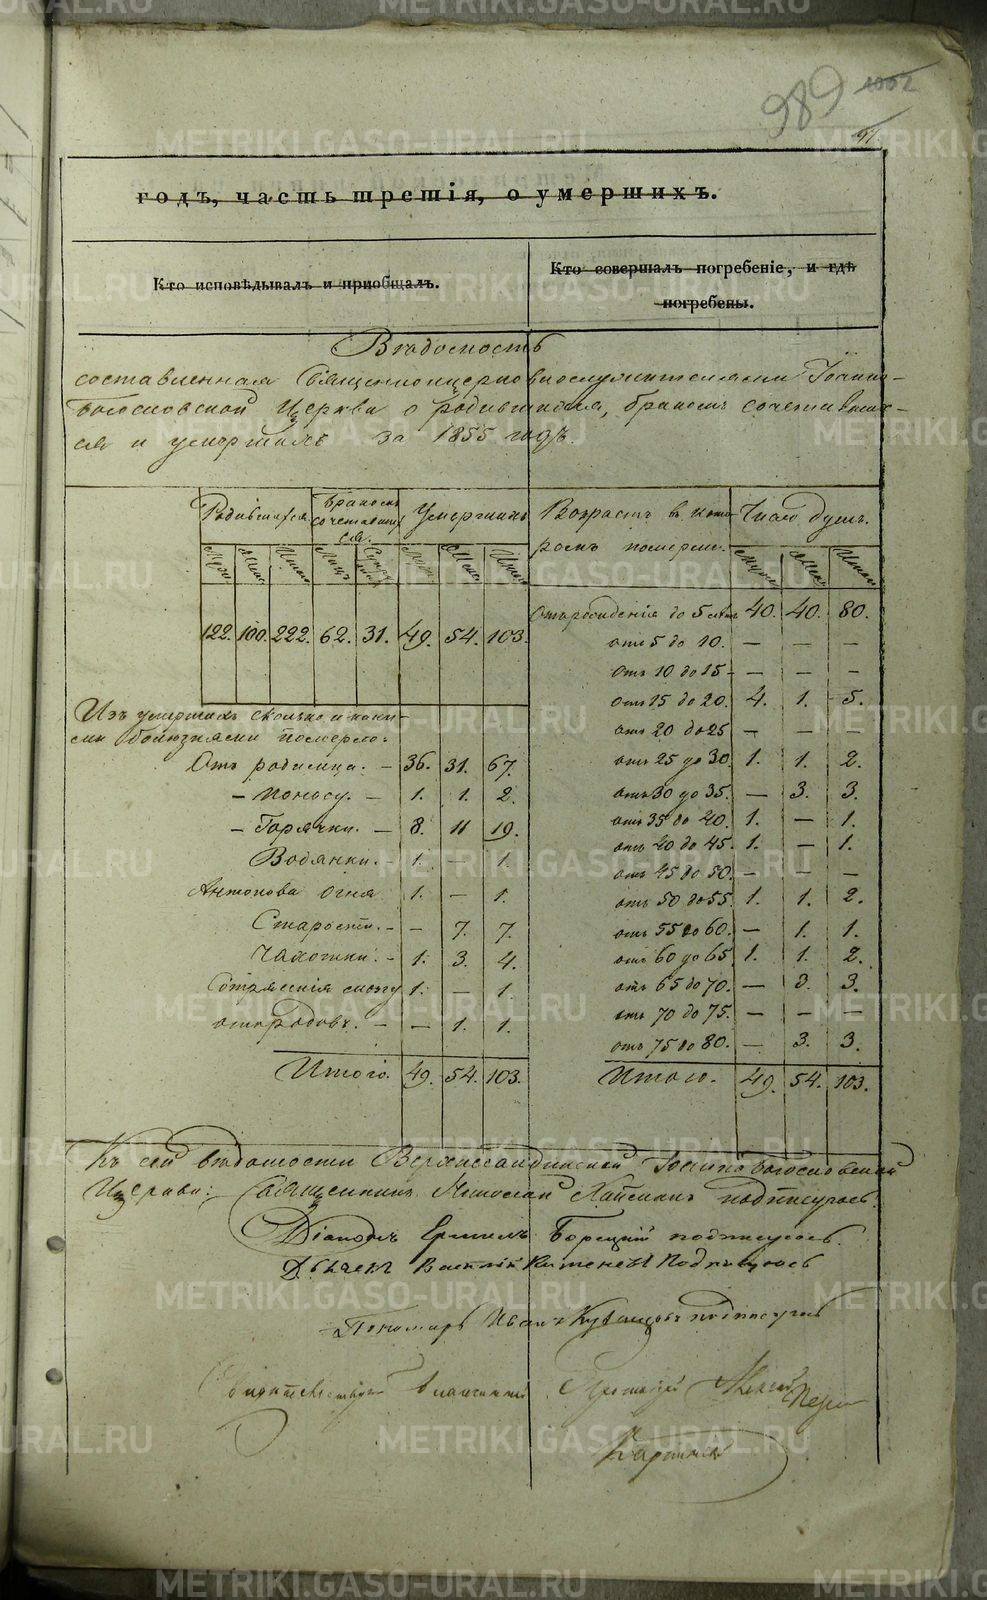 989 1002
годъ, часть третія, о умершихъ.
Кто исповѣдывалъ и приобщалъ.
Кто совершалъ погребеніе, и гдѣ погребены.
Вѣдомость
составленная Священноцерковнослужителями Іоанно-
Богословской Церкви о родившихся, бракомъ сочетавших-
ся и умершихъ за 1855 годъ.
Родившихся Бракомъ сочетавших ся. Умершихъ
Муж. Жен. Итого Лицъ Муж. Жен. Итого
122. 100. 222. 62. 31. 49. 54. 103.
Изъ умершихъ сколько и каки-
ми болѣзнями померло:
Отъ родимца. – 36. 31. 67.
– Поносу. – 1. 1. 2.
– Горячки. – 8. 11 19.
Водянки. – 1. – 1.
Антонова огня 1. – 1.
Старости. – – 7. 7.
Чахотки. – 1. 3. 4.
Сотрясенія мозгу 1. – 1.
отъ родовъ. – – 1. 1.
Итого. 49. 54. 103.
Возрастъ въ кото Число душъ.
ромъ померли. Муж. Жен. Итого
Отъ рожденія до 5 лѣтъ 40. 40. 80.
отъ 5 до 10. – – –
отъ 10 до 15 – – – –
отъ 15 до 20. 4. 1. 5.
отъ 20 до 25 – – –
отъ 25 до 30. 1. 1. 2.
отъ 30 до 35. – 3. 3.
отъ 35 до 40. 1. – 1.
отъ 40 до 45. 1. – 1.
отъ 45 до 50. – – –
отъ 50 до 55. 1. 1. 2.
отъ 55 до 60. – 1. 1.
отъ 60 до 65. 1. 1. 2.
отъ 65 до 70. – 3. 3.
отъ 70 до 75. – – –
отъ 75 до 80. – 3. 3.
Итого. 49. 54. 103.
Къ сей вѣдомости Верхнессандинской Іоанно Богословской
Церкви: Священникъ Николай подписуюсь.
Діаконъ Ермилъ Борецкій подписуюсь.
Дьячекъ Василій Подписуюсь
Пономарь Иванъ Кузнецовъ подписуюсь
Свидетельствовалъ Благочинный Протоіерей Алексей
METRIKI.GASO-URAL.RU